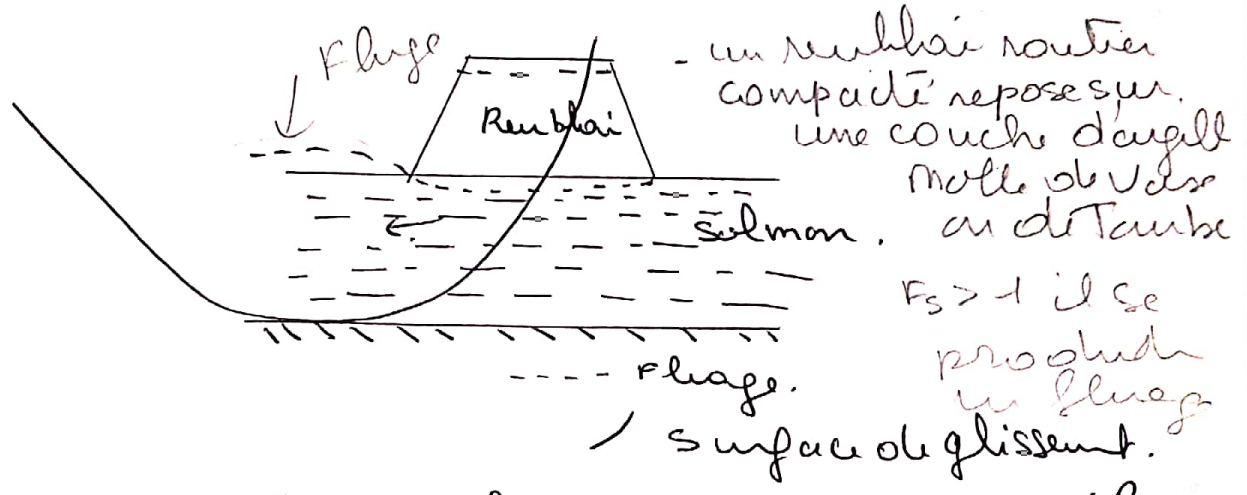 Fluge
Remblai
- un remblai routier
compacté repose sur.
une couche d'argill
molle de Vase
ou de Tourbe
Sol mou.
Fs > 1 il se
produit
un fluag
---- Fluage.
/ Surface de glissemt.